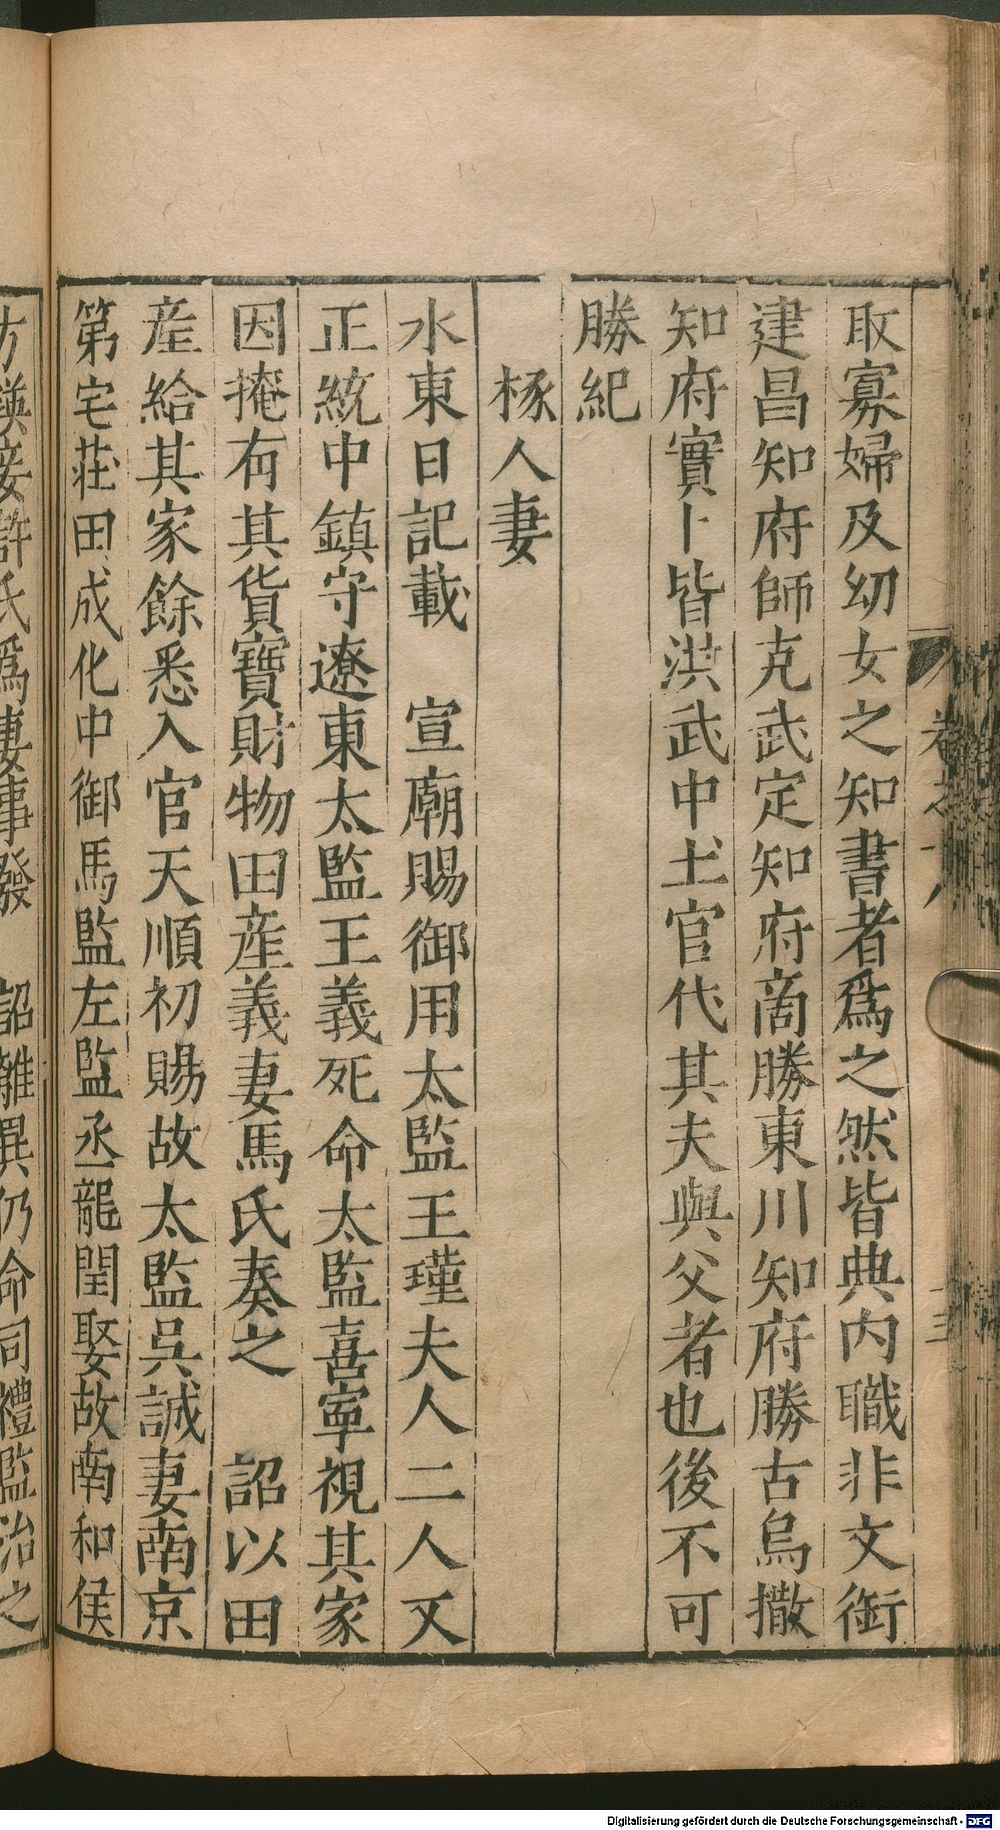 取寡婦及幼女之知書者爲之然皆典内職非文銜
建昌知府師克武定知府啇勝東川知府勝古烏撒
知府實卜皆洪武中土官代其夫與父者也後不可
勝紀
椓人妻
水東日記載　宣廟賜御用太監王瑾夫人二人又
正統中鎮守遼東太監王義死命太監喜寧視其家
因掩有其貨寶財物田産義妻馬氏奏之　詔以田
産給其家餘悉入官天順初賜故太監吳誠妻南京
第宅莊田成化中御馬監左監丞龍閏娶故南和侯
方瑛妾許氏爲妻事發　詔離異仍命司禮監治之
卷之十八
三
Digitalisierung gefördert durch die Deutsche Forschungsgemeinschaft - DFG